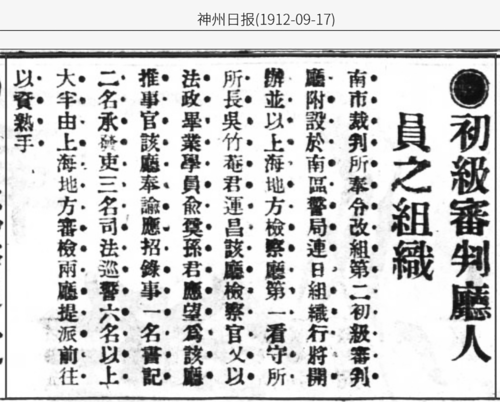 神州日报(1912-09-17)
●初級審判廳人
員之組織
南市裁判所奉令改組第二初級審判
廳附設於南區警局連日組織行將開
辦並以上海地方檢察廳第一看守所
所長吳竹菴君運昌該廳檢察官又以
法政畢業學員俞蓂孫君應望爲該廳
推事官該廳奉諭應招錄事一名書記
二名承發吏三名司法巡警六名以上
大半由上海地方審檢兩廳提派前往
以資熟手